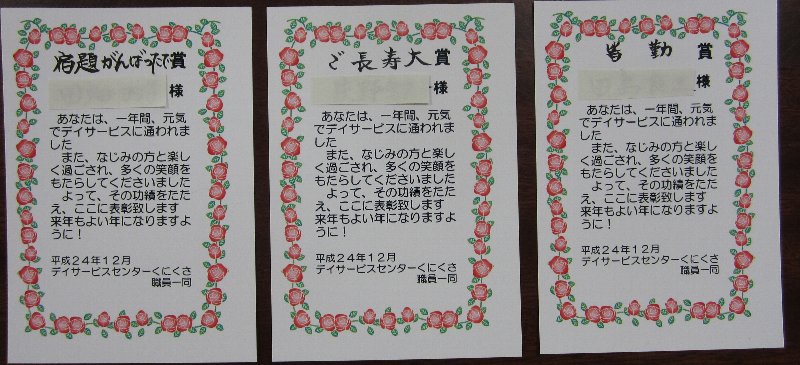 宿題がんばったで賞
様
あなたは、一年間、元気
でデイサービスに通われま
した
また、なじみの方と楽し
く過ごされ、多くの笑顔を
もたらしてくださいました
よって、その功績をたた
え、ここに表彰致します
来年もよい年になりますよ
うに！
平成24年12月
デイサービスセンターくにくさ
職員一同
ご長寿大賞
様
あなたは、一年間、元気
でデイサービスに通われま
した
また、なじみの方と楽し
く過ごされ、多くの笑顔を
もたらしてくださいました
よって、その功績をたた
え、ここに表彰致します
来年もよい年になりますよ
うに！
平成24年12月
デイサービスセンターくにくさ
職員一同
皆勤賞
様
あなたは、一年間、元気
でデイサービスに通われま
した
また、なじみの方と楽し
く過ごされ、多くの笑顔を
もたらしてくださいました
よって、その功績をたた
え、ここに表彰致します
来年もよい年になりますよ
うに！
平成24年12月
デイサービスセンターくにくさ
職員一同